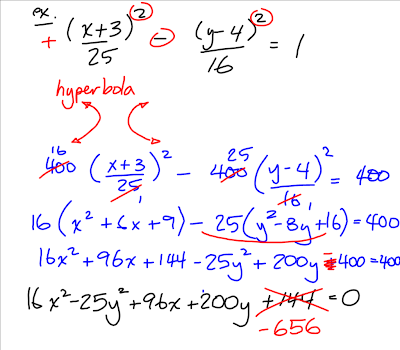 ex.
+ (x+3)²/25 - (y-4)²/16 = 1
hyperbola
16 400 (x+3/25)² - 25 400 (y-4/16)² = 400
1 1
16(x² + 6x + 9) - 25(y² - 8y + 16) = 400
16x² + 96x + 144 - 25y² + 200y - 400 = 400
16x² - 25y² + 96x + 200y + 144 = 0
-656